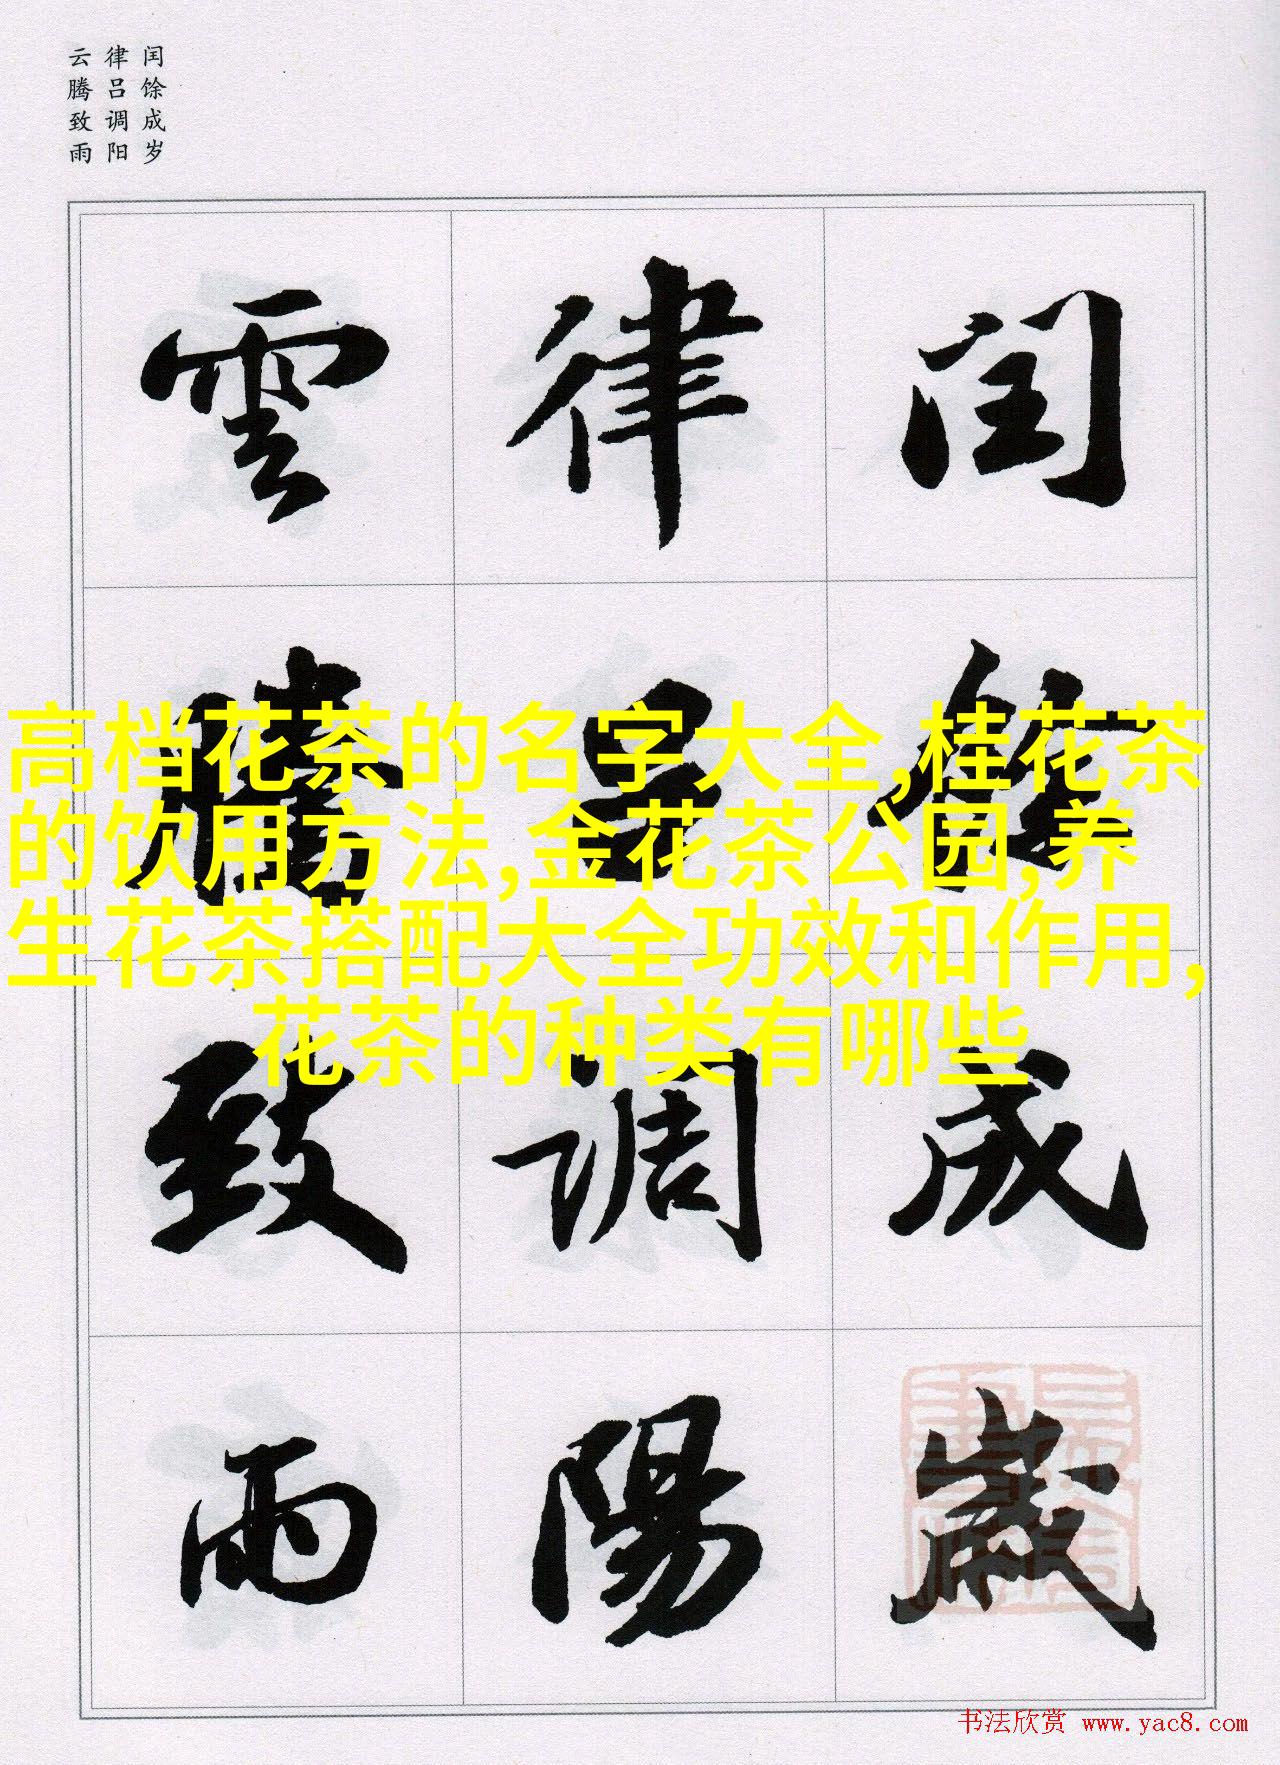 闰馀成岁
律吕调阳
云腾致雨
闰馀成歳
律吕调陽
雲騰致雨
高档花茶的名字大全,桂花茶
的饮用方法,金花茶公园,养
生花茶搭配大全功效和作用,
花茶的种类有哪些
书法欣赏 www.yac8.com